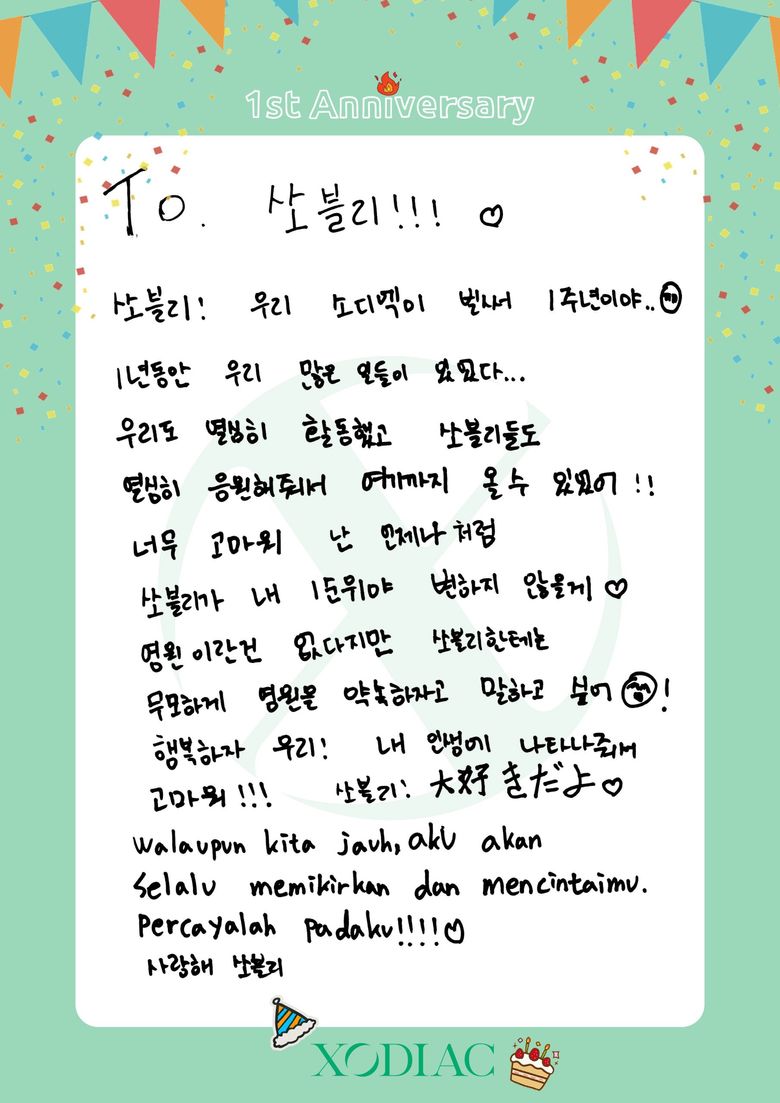 1st Anniversary
To. 쏘블리!!! ♡
쏘블리! 우리 소디엑이 벌써 1주년이야..
1년동안 우리 많은 일들이 있었다...
우리도 열심히 활동했고 쏘블리들도
열심히 응원해줘서 여기까지 올 수 있었어 !!
너무 고마워 난 언제나처럼
쏘블리가 내 1순위야 변하지 않을게 ♡
영원이란건 없다지만 쏘블리한테는
무모하게 영원을 약속하자고 말하고 싶어 !
행복하자 우리! 내 인생에 나타나줘서
고마워 !!! 쏘블리! 大好きだよ ♡
Walaupun kita jauh, aku akan
Selalu memikirkan dan mencintaimu.
Percayalah padaku!!!!♡
사랑해 쏘블리
XODIAC